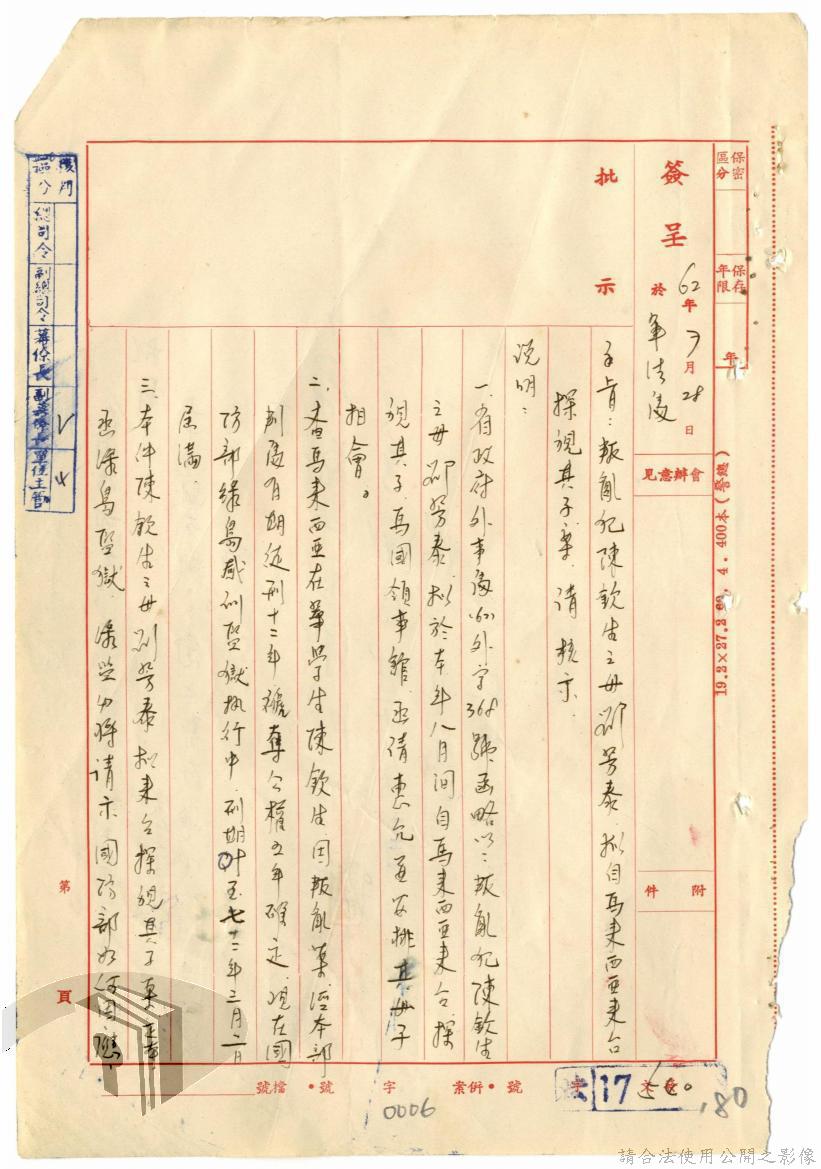 保密區分
保存年限
年
19.2×27.2 62. 4. 400本(警總)
簽呈
於
62年7月28日
軍法處
會辦意見
附件
批示
主旨:叛亂犯陳欽生之母劉芳泰,擬自馬來西亞來台
探視其子案,請核示。
說明:
一、省政府外事處 外字368號函略以:叛亂犯陳欽生
之母劉芳泰,擬於本年八月間自馬來西亞來台探
視其子,馬國領事館函請惠允並安排其母子
相會。
二、查馬來西亞在華學生陳欽生,因叛亂案,經本部
判處有期徒刑十二年褫奪公權五年確定,現在國
防部綠島感訓監獄執行中,刑期計至七十二年三月二日
屆滿。
三、本件陳欽生之母劉芳泰擬來台探視其子案
函綠島監獄,請示國防部如何因應
第頁
後門
區分
總司令
副總司令
參謀長
副參謀長
單位主管
檔號
字
號
併案
號
17
180
0006
請合法使用公開之影像